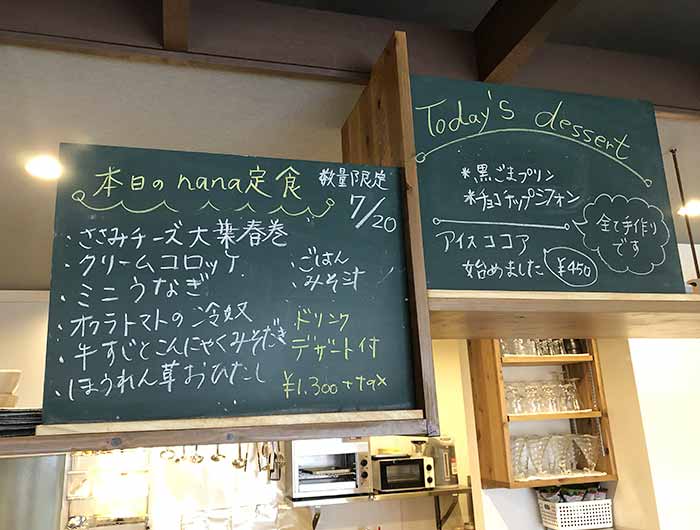 本日のnana定食
数量限定
7/20
・ささみチーズ大葉春巻
・クリームコロッケ
・ミニうなぎ
・オクラトマトの冷奴
・牛すじとこんにゃくみそだき
・ほうれん草おひたし
・ごはん
・みそ汁
ドリンク
デザート付
¥1.300+tax
Today's dessert
*黒ごまプリン
*チョコチップシフォン
全て手作り
です
アイスココア
始めました ¥450